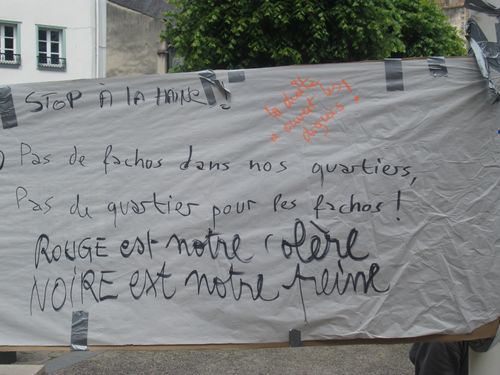 STOP À LA HAINE !
Pas de fachos dans nos quartiers,
Pas de quartier pour les fachos !
ROUGE est notre colère
NOIRE est notre peine